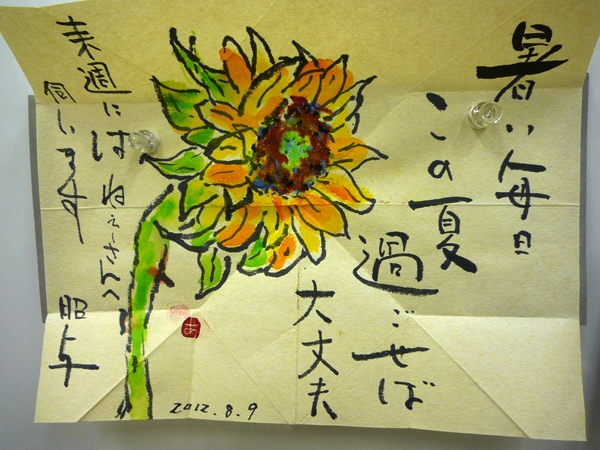 暑い毎日
この夏
過ごせば
大丈夫
来週には
ねぇーさんへ
伺います
昭与
あ
2012.8.9